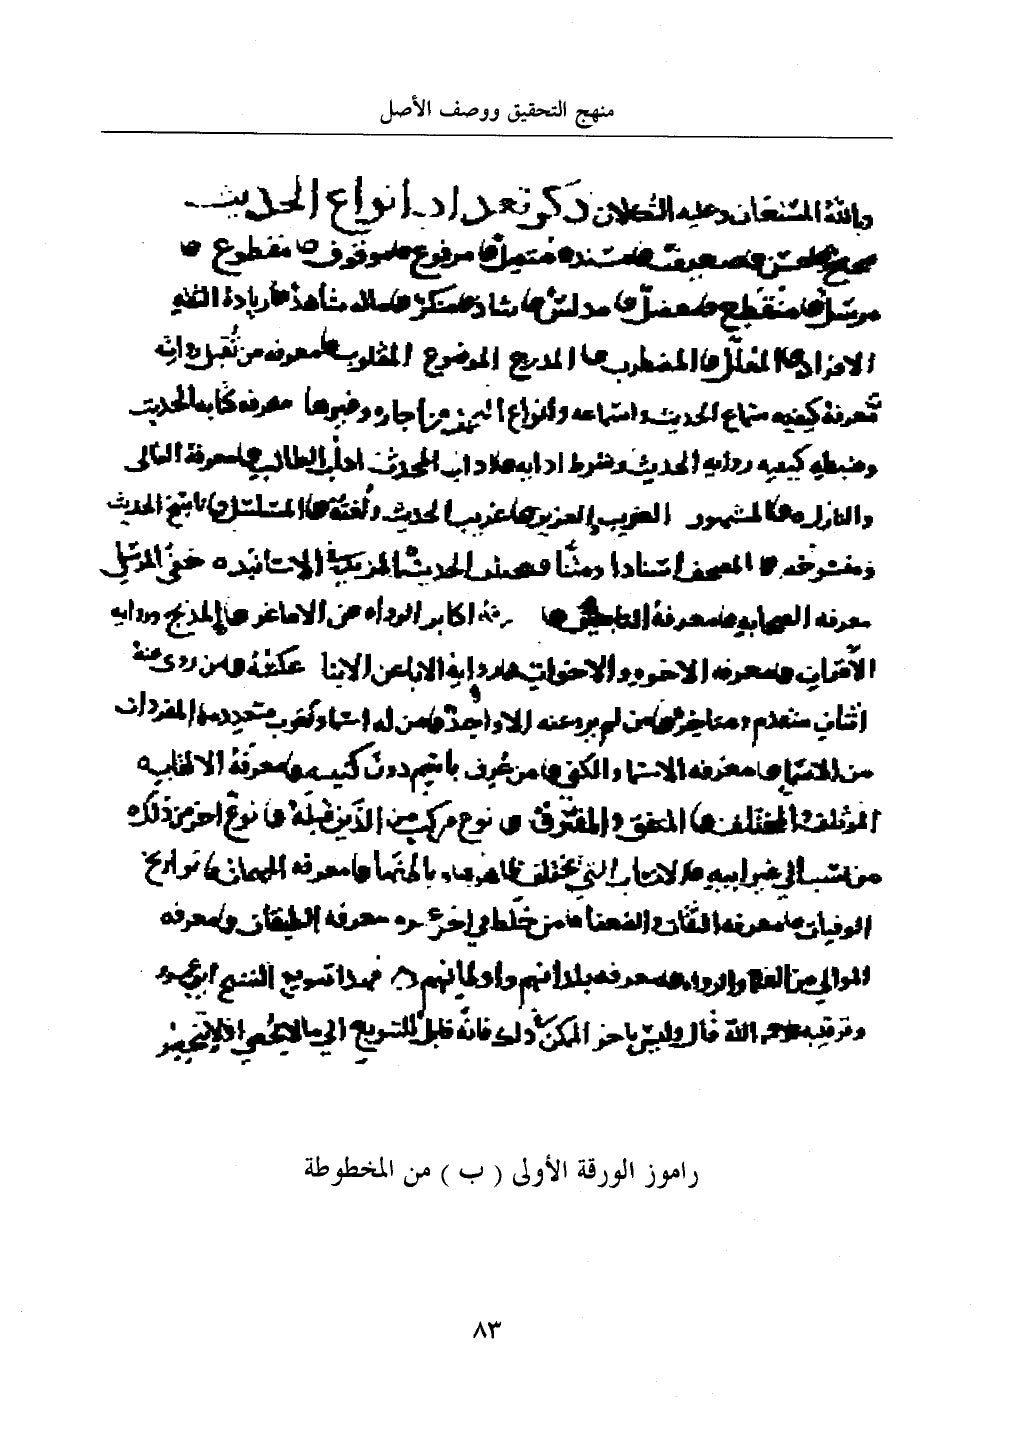 منهج التحقيق ووصف الأصل
والله المستعان وعليه التكلان ذكر تعداد أنواع الحديث
صحيح حسن ضعيف مسند متصل مرفوع موقوف مقطوع
مرسل منقطع معضل مدلس شاذ منكر ماله شاهد زيادة الثقة
الافراد المعلل المضطرب المدرج الموضوع المقلوب معرفة من تقبل روايته
معرفة كيفية سماع الحديث واسماعه وأنواع التحمل من اجازة وغيرها معرفة كتابة الحديث
وضبطه كيفية رواية الحديث وشرط ادايه اداب المحدث اداب الطالب معرفة العالي
والنازل المشهور الغريب العزيز غريب الحديث ولغته المسلسل ناسخ الحديث
ومنسوخه المصحف اسنادا ومتنا مختلف الحديث المزيد في الاسانيد خفي المرسل
معرفة الصحابة معرفة التابعين اكابر الرواة عن الاصاغر المدبج ورواية
الأقران معرفة الاخوة والاخوات رواية الابا عن الابنا عكسه من روى عنه
اثنان متقدم ومتاخر من لم يرو عنه الا واحد من له اسما ونعوت متعددة المفردات
من الاسما معرفة الاسما والكنى من عرف باسم دون كنيته معرفة الالقاب
المؤتلف والمختلف المتفق والمفترق نوع مركب من الذين قبله نوع اخر من ذلك
من نسب الي غير ابيه الانساب التي يختلف ظاهرها وباطنها معرفة المبهمات تواريخ
الوفيات معرفة الثقات والضعفا من خلط في اخر عمره معرفة الطبقات معرفة
الموالي من العلما والرواة معرفة بلدانهم واوطانهم فهذا تنويع الشيخ ابي عمرو
وترتيبه رحمه الله قال وليس باخر الممكن في ذلك فانه قابل للتنويع الي ما لا يحصي اذ لا تنحصر
راموز الورقة الأولى ( ب ) من المخطوطة
٨٣